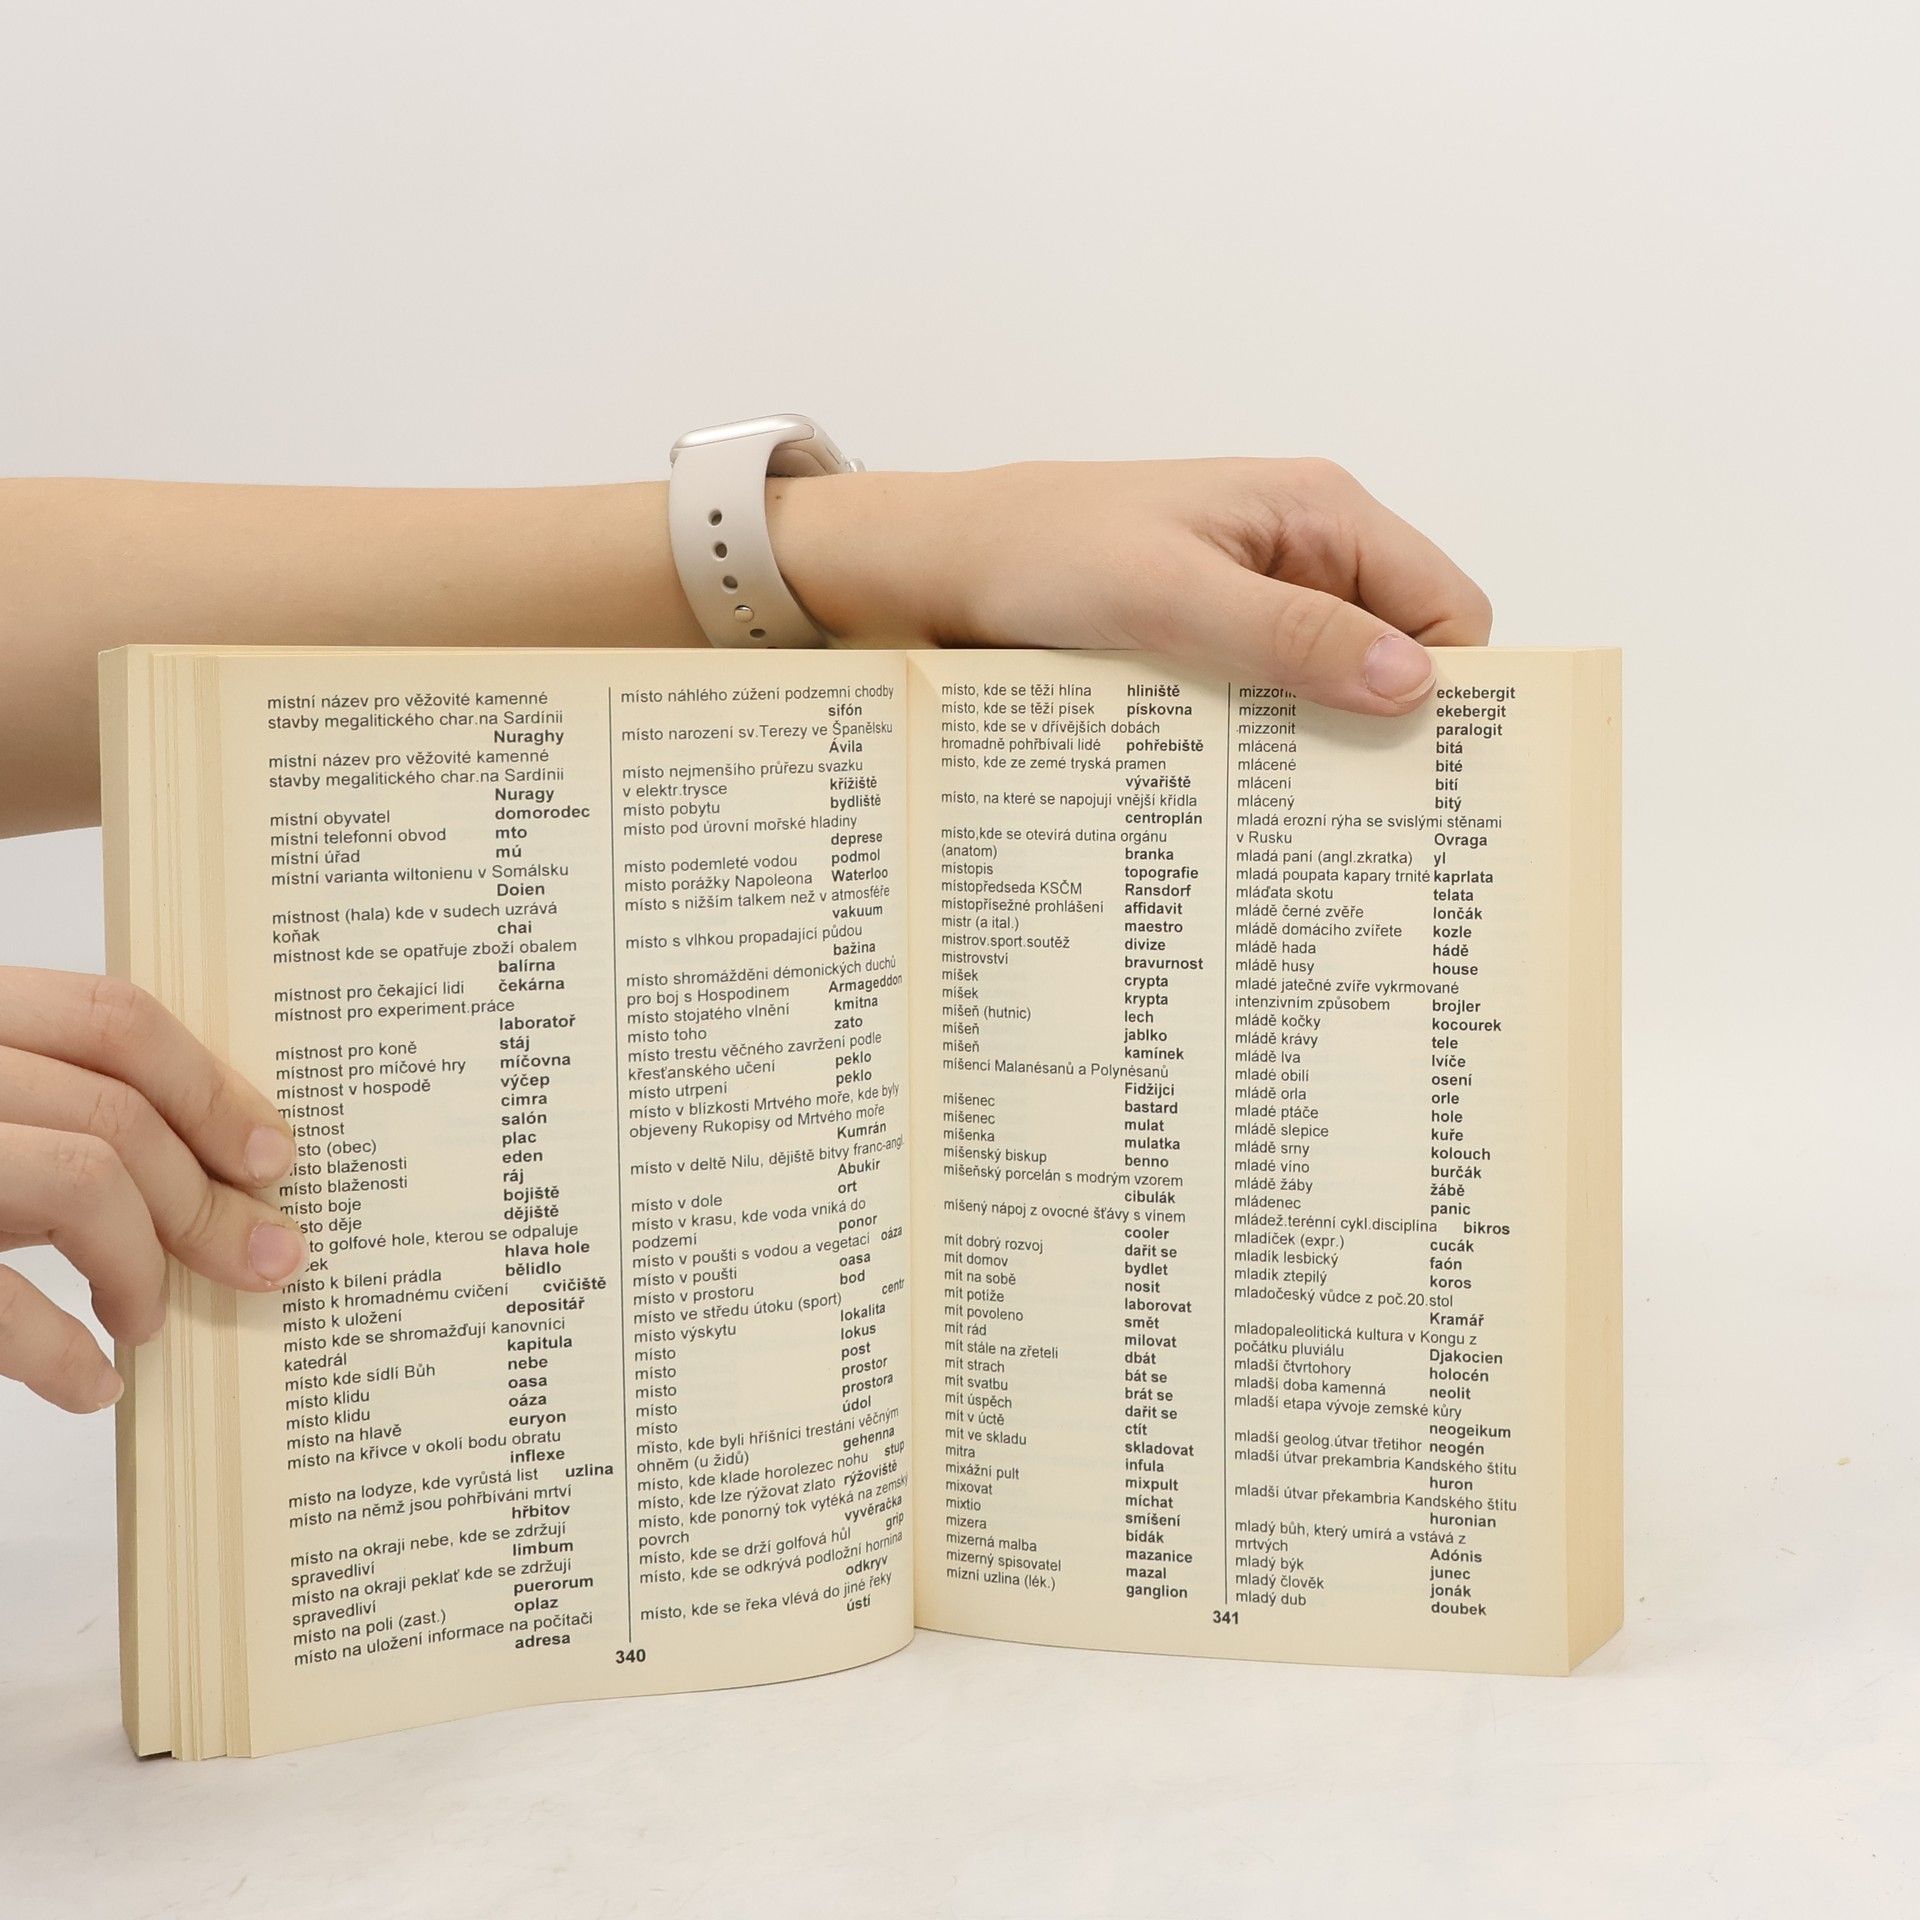 místní název pro věžovité kamenné
stavby megalitického char.na Sardínii
Nuraghy
místní název pro věžovité kamenné
stavby megalitického char.na Sardínii
Nuragy
místní obyvatel domorodec
místní telefonní obvod mto
místní úřad mú
místní varianta wiltonienu v Somálsku
Doien
místnost (hala) kde v sudech uzrává
koňak chai
místnost kde se opatřuje zboží obalem
balírna
místnost pro čekající lidi čekárna
místnost pro experiment.práce
laboratoř
místnost pro koně stáj
místnost pro míčové hry míčovna
místnost v hospodě výčep
místnost cimra
ístnost salón
ísto (obec) plac
ísto blaženosti eden
místo blaženosti ráj
místo boje bojiště
ísto děje dějiště
to golfové hole, kterou se odpaluje
ek hlava hole
místo k bílení prádla bělidlo
místo k hromadnému cvičení cvičiště
místo k uložení depositář
místo kde se shromažďují kanovníci
katedrál kapitula
místo kde sídlí Bůh nebe
místo klidu oasa
místo klidu oáza
místo na hlavě euryon
místo na křivce v okolí bodu obratu
inflexe
místo na lodyze, kde vyrůstá list uzlina
místo na němž jsou pohřbíváni mrtví
hřbitov
místo na okraji nebe, kde se zdržují
spravedliví limbum
místo na okraji peklať kde se zdržují
spravedliví puerorum
místo na poli (zast.) oplaz
místo na uložení informace na počítači
adresa
místo náhlého zúžení podzemní chodby
sifón
místo narození sv.Terezy ve Španělsku
Ávila
místo nejmenšího průřezu svazku
v elektr.trysce křížiště
místo pobytu bydliště
místo pod úrovní mořské hladiny
deprese
místo podemleté vodou podmol
místo porážky Napoleona Waterloo
místo s nižším talkem než v atmosféře
vakuum
místo s vlhkou propadající půdou
bažina
místo shromáždění démonických duchů
pro boj s Hospodinem Armageddon
místo stojatého vlnění kmitna
místo toho zato
místo trestu věčného zavržení podle
křesťanského učení peklo
místo utrpení peklo
místo v blízkosti Mrtvého moře, kde byly
objeveny Rukopisy od Mrtvého moře
Kumrán
místo v deltě Nilu, dějiště bitvy franc-angl.
Abukir
místo v dole ort
místo v krasu, kde voda vniká do
podzemí ponor
místo v poušti s vodou a vegetací oáza
místo v poušti oasa
místo v prostoru bod
místo ve středu útoku (sport) centr
místo výskytu lokalita
místo lokus
místo post
místo prostor
místo prostora
místo údol
místo, kde byli hříšníci trestáni věčným
ohněm (u židů) gehenna
místo, kde klade horolezec nohu stup
místo, kde lze rýžovat zlato rýžoviště
místo, kde ponorný tok vytéká na zemský
povrch vyvěračka
místo, kde se drží golfová hůl grip
místo, kde se odkrývá podložní hornina
odkryv
místo, kde se řeka vlévá do jiné řeky
ústí
340
místo, kde se těží hlína hliniště
místo, kde se těží písek pískovna
místo, kde se v dřívějších dobách
hromadně pohřbívali lidé pohřebiště
místo, kde ze země tryská pramen
vývařiště
místo, na které se napojují vnější křídla
centroplán
místo,kde se otevírá dutina orgánu
(anatom) branka
místopis topografie
místopředseda KSČM Ransdorf
místopřísežné prohlášení affidavit
mistr (a ital.) maestro
mistrov.sport.soutěž divize
mistrovství bravurnost
míšek crypta
míšek krypta
míšeň (hutnic) lech
míšeň jablko
míšeň kamínek
míšenci Malanésanů a Polynésanů
Fidžijci
míšenec bastard
míšenec mulat
míšenka mulatka
míšenský biskup benno
míšeňský porcelán s modrým vzorem
cibulák
míšený nápoj z ovocné šťávy s vínem
cooler
mít dobrý rozvoj dařit se
mít domov bydlet
mít na sobě nosit
mít potíže laborovat
mít povoleno smět
mít rád milovat
mít stále na zřeteli dbát
mít strach bát se
mít svatbu brát se
mít úspěch dařit se
mít v úctě ctít
mít ve skladu skladovat
mitra infula
mixážní pult mixpult
mixovat míchat
mixtio smíšení
mizera bídák
mizerná malba mazanice
mizerný spisovatel mazal
mízní uzlina (lék.) ganglion
341
mizzonit eckebergit
mizzonit ekebergit
mizzonit paralogit
mlácená bitá
mlácené bité
mlácení bití
mlácený bitý
mladá erozní rýha se svislými stěnami
v Rusku Ovraga
mladá paní (angl.zkratka) yl
mladá poupata kapary trnité kaprlata
mláďata skotu telata
mládě černé zvěře lončák
mládě domácího zvířete kozle
mládě hada hádě
mládě husy house
mladé jatečné zvíře vykrmované
intenzivním způsobem brojler
mládě kočky kocourek
mládě krávy tele
mládě lva lvíče
mladé obilí osení
mládě orla orle
mladé ptáče hole
mládě slepice kuře
mládě srny kolouch
mladé víno burčák
mládě žáby žábě
mládenec panic
mládež.terénní cykl.disciplína bikros
mladíček (expr.) cucák
mladík lesbický faón
mladík ztepilý koros
mladočeský vůdce z poč.20.stol
Kramář
mladopaleolitická kultura v Kongu z
počátku pluviálu Djakocien
mladší čtvrtohory holocén
mladší doba kamenná neolit
mladší etapa vývoje zemské kůry
neogeikum
mladší geolog.útvar třetihor neogén
mladší útvar prekambria Kandského štítu
huron
mladší útvar překambria Kandského štítu
huronian
mladý bůh, který umírá a vstává z
mrtvých Adónis
mladý býk junec
mladý člověk jonák
mladý dub doubek